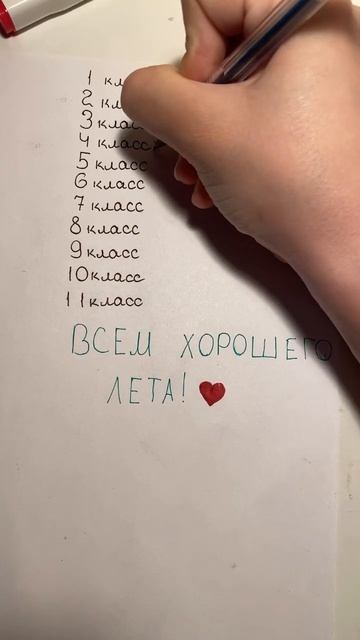 1 кл
2 кл
3 класс
4 класс
5 класс
6 класс
7 класс
8 класс
9 класс
10 класс
11 класс
ВСЕМ ХОРОШЕГО
ЛЕТА!